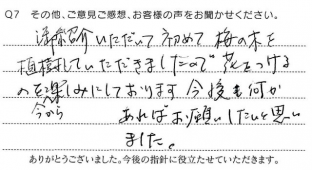 Q7 その他、ご意見ご感想、お客様の声をお聞かせください。
紹介いただいて初めて梅の木を
植樹していただきましたので花をつける
のを今から楽しみにしております 今後も何か
あればお願いしたいと思い
ました。
ありがとうございました。今後の指針に役立たせていただきます。